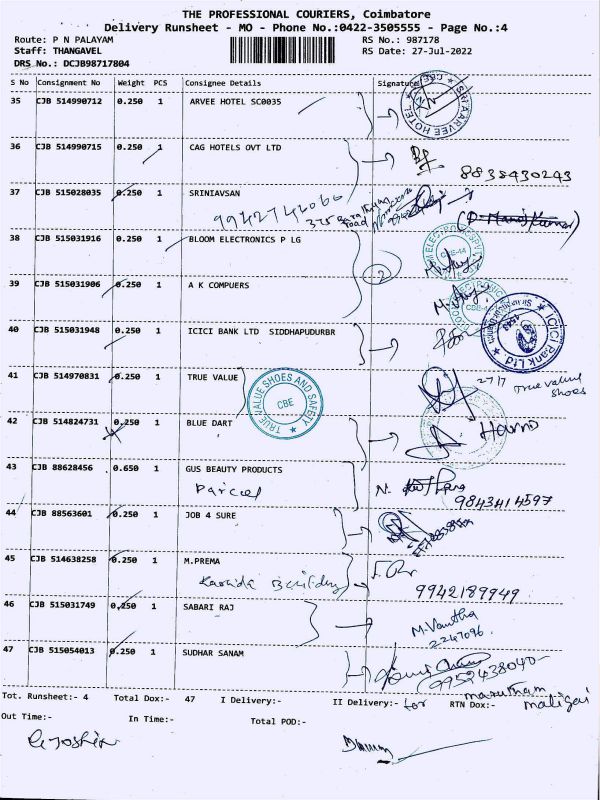 THE PROFESSIONAL COURIERS, Coimbatore
Delivery Runsheet - MO - Phone No.:0422-3505555 - Page No.:4
Route: P N PALAYAM RS No.: 987178
Staff: THANGAVEL RS Date: 27-Jul-2022
DRS No.: DCJB98717804
S No Consignment No Weight PCS Consignee Details Signature
35 CJB 514990712 0.250 1 ARVEE HOTEL SC0035
ARVEE HOTEL
36 CJB 514990715 0.250 1 CAG HOTELS OVT LTD
8838430243
37 CJB 515028035 0.250 1 SRINIAVSAN
9942742060
38 CJB 515031916 0.250 1 BLOOM ELECTRONICS P LG
2
39 CJB 515031906 0.250 1 A K COMPUERS
40 CJB 515031948 0.250 1 ICICI BANK LTD SIDDHAPUDURBR
ICICI Bank Ltd
41 CJB 514970831 0.250 1 TRUE VALUE
TRUE VALUE SHOES AND SAFETY
CBE
27/7 True value
shoes
42 CJB 514824731 0.250 1 BLUE DART
43 CJB 88628456 0.650 1 GUS BEAUTY PRODUCTS
Parcel
9843414597
44 CJB 88563601 0.250 1 JOB 4 SURE
45 CJB 514638258 0.250 1 M.PREMA
Building
9942189949
46 CJB 515031749 0.250 1 SABARI RAJ
M. Vanitha
2247096
47 CJB 515054013 0.250 1 SUDHAR SANAM
9952438040
for marutham maligai
Tot. Runsheet:- 4 Total Dox:- 47 I Delivery:- II Delivery:- RTN Dox:-
Out Time:- In Time:- Total POD:-